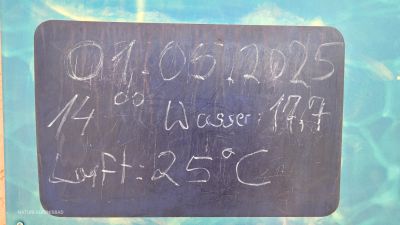 01.05.2025
14°° Wasser: 17,7
Luft: 25°C